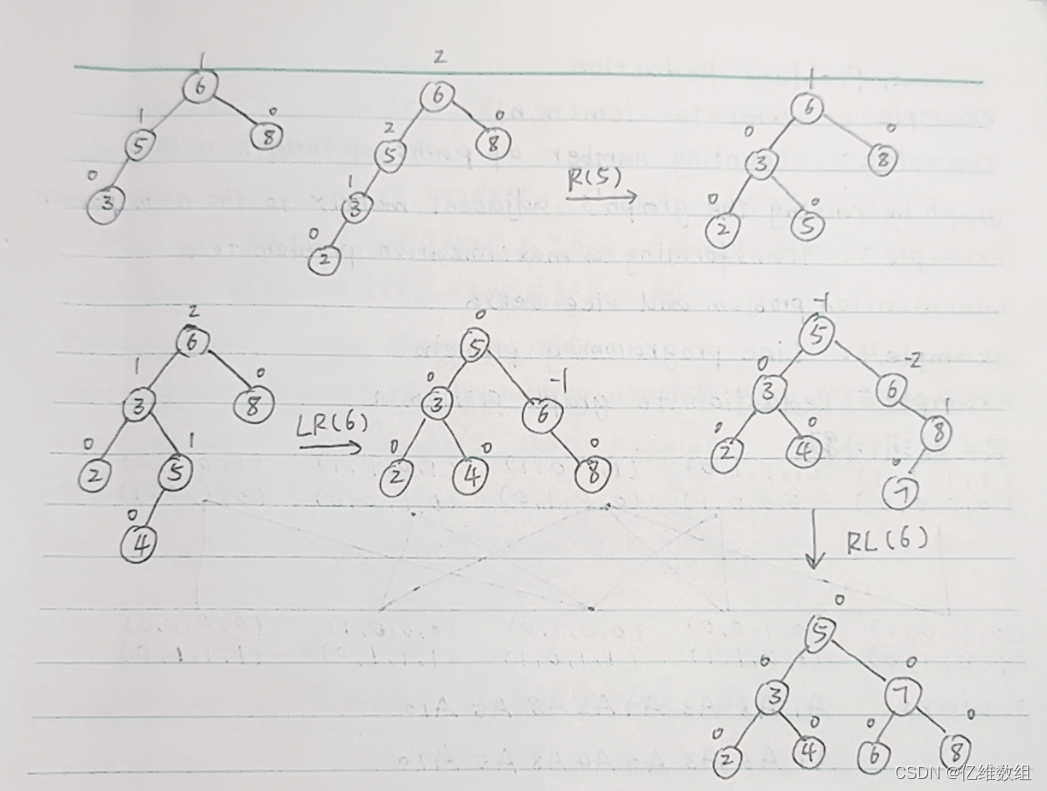 1
6
1 0
5 8
0
3
2
6
2 0
5 8
1
3
0
2
R(5)
1
6
0
3 8
0 0
2 5
2
6
1 0
3 8
0 1
2 5
0
4
LR(6)
0
5
0 -1
3 6
0 0 0
2 4 8
-1
5
0 -2
3 6
0 0 1
2 4 8
0
7
RL(6)
0
5
0 0
3 7
0 0 0 0
2 4 6 8
CSDN @亿维数组